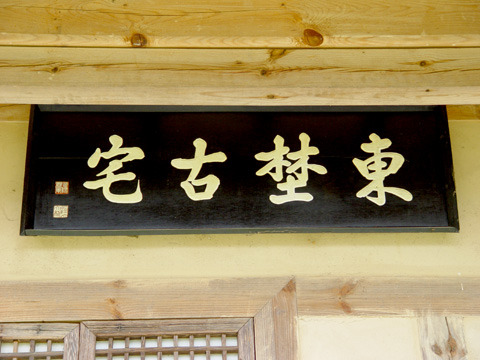 東埜古宅